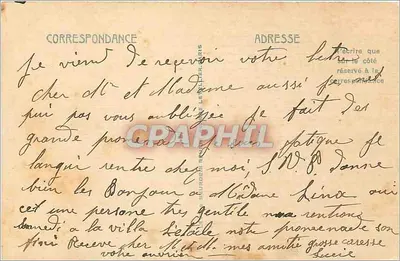 CORRESPONDANCE
ADRESSE
N'écrire que
sur le côté
réservé à la
correspondance
Je viens de recevoir votre lettre
cher Mr et Madame aussi je met
pui pas vous oubliezze je fait des
grande promenad et
CPAPHIL
rentre chez moi, S.V.P. donne
bien les Bonjour a Madame Lina oui
cest une personne tres gentile nous rentrions
a la villa Letoile notre promenade son
fini Receve cher M. et M. mes amitiés grosse caresse
votre ouvrier Lucie